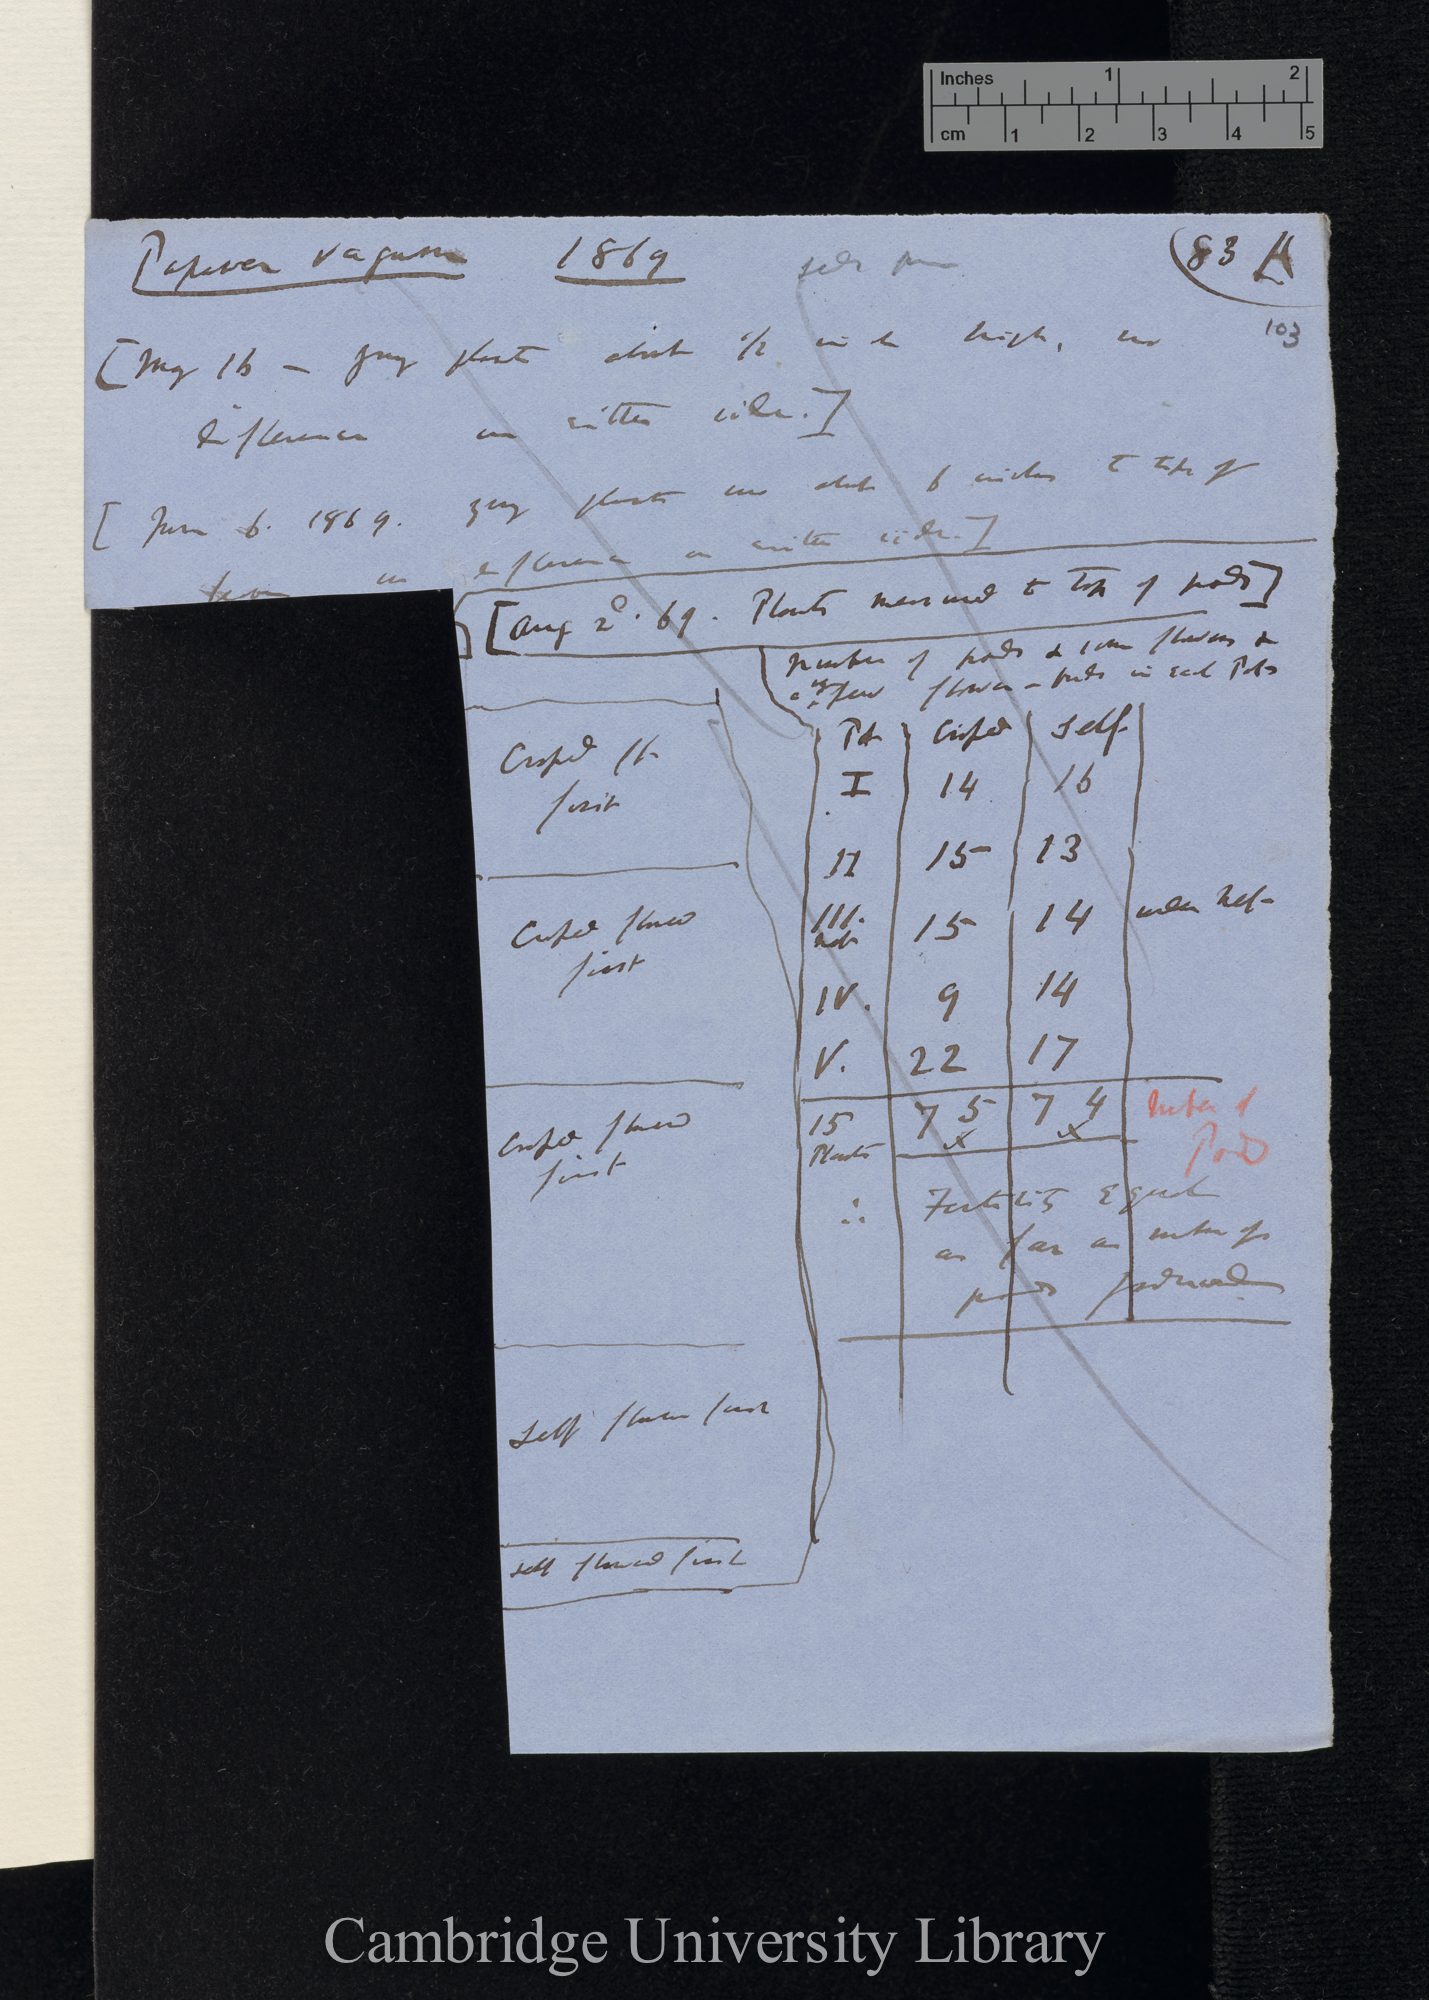 Inches 1 2
cm 1 2 3 4 5
Papaver vagum 1869
(83 A
103
[May 16 — young plants about 1/2 inch high, no
difference on either side.]
[June 6. 1869. young plants now about 6 inches to tips of
leaves no difference on either side.]
[Aug 2d. 69. Plants measured to top of pods]
Number of pods & some flowers &
a very few flower-buds in each Pots
Pot Crossed Self
I 14 16
II 15 13
III. 15 14
IV. 9 14
V. 22 17
15 75 74
Plants x x
Number of
Pods
∴ Fertility Equal
as far as number of
pods produced
Crossed fl
first
Crossed flower
first
Crossed flower
first
Self flower first
self flowered first
Cambridge University Library